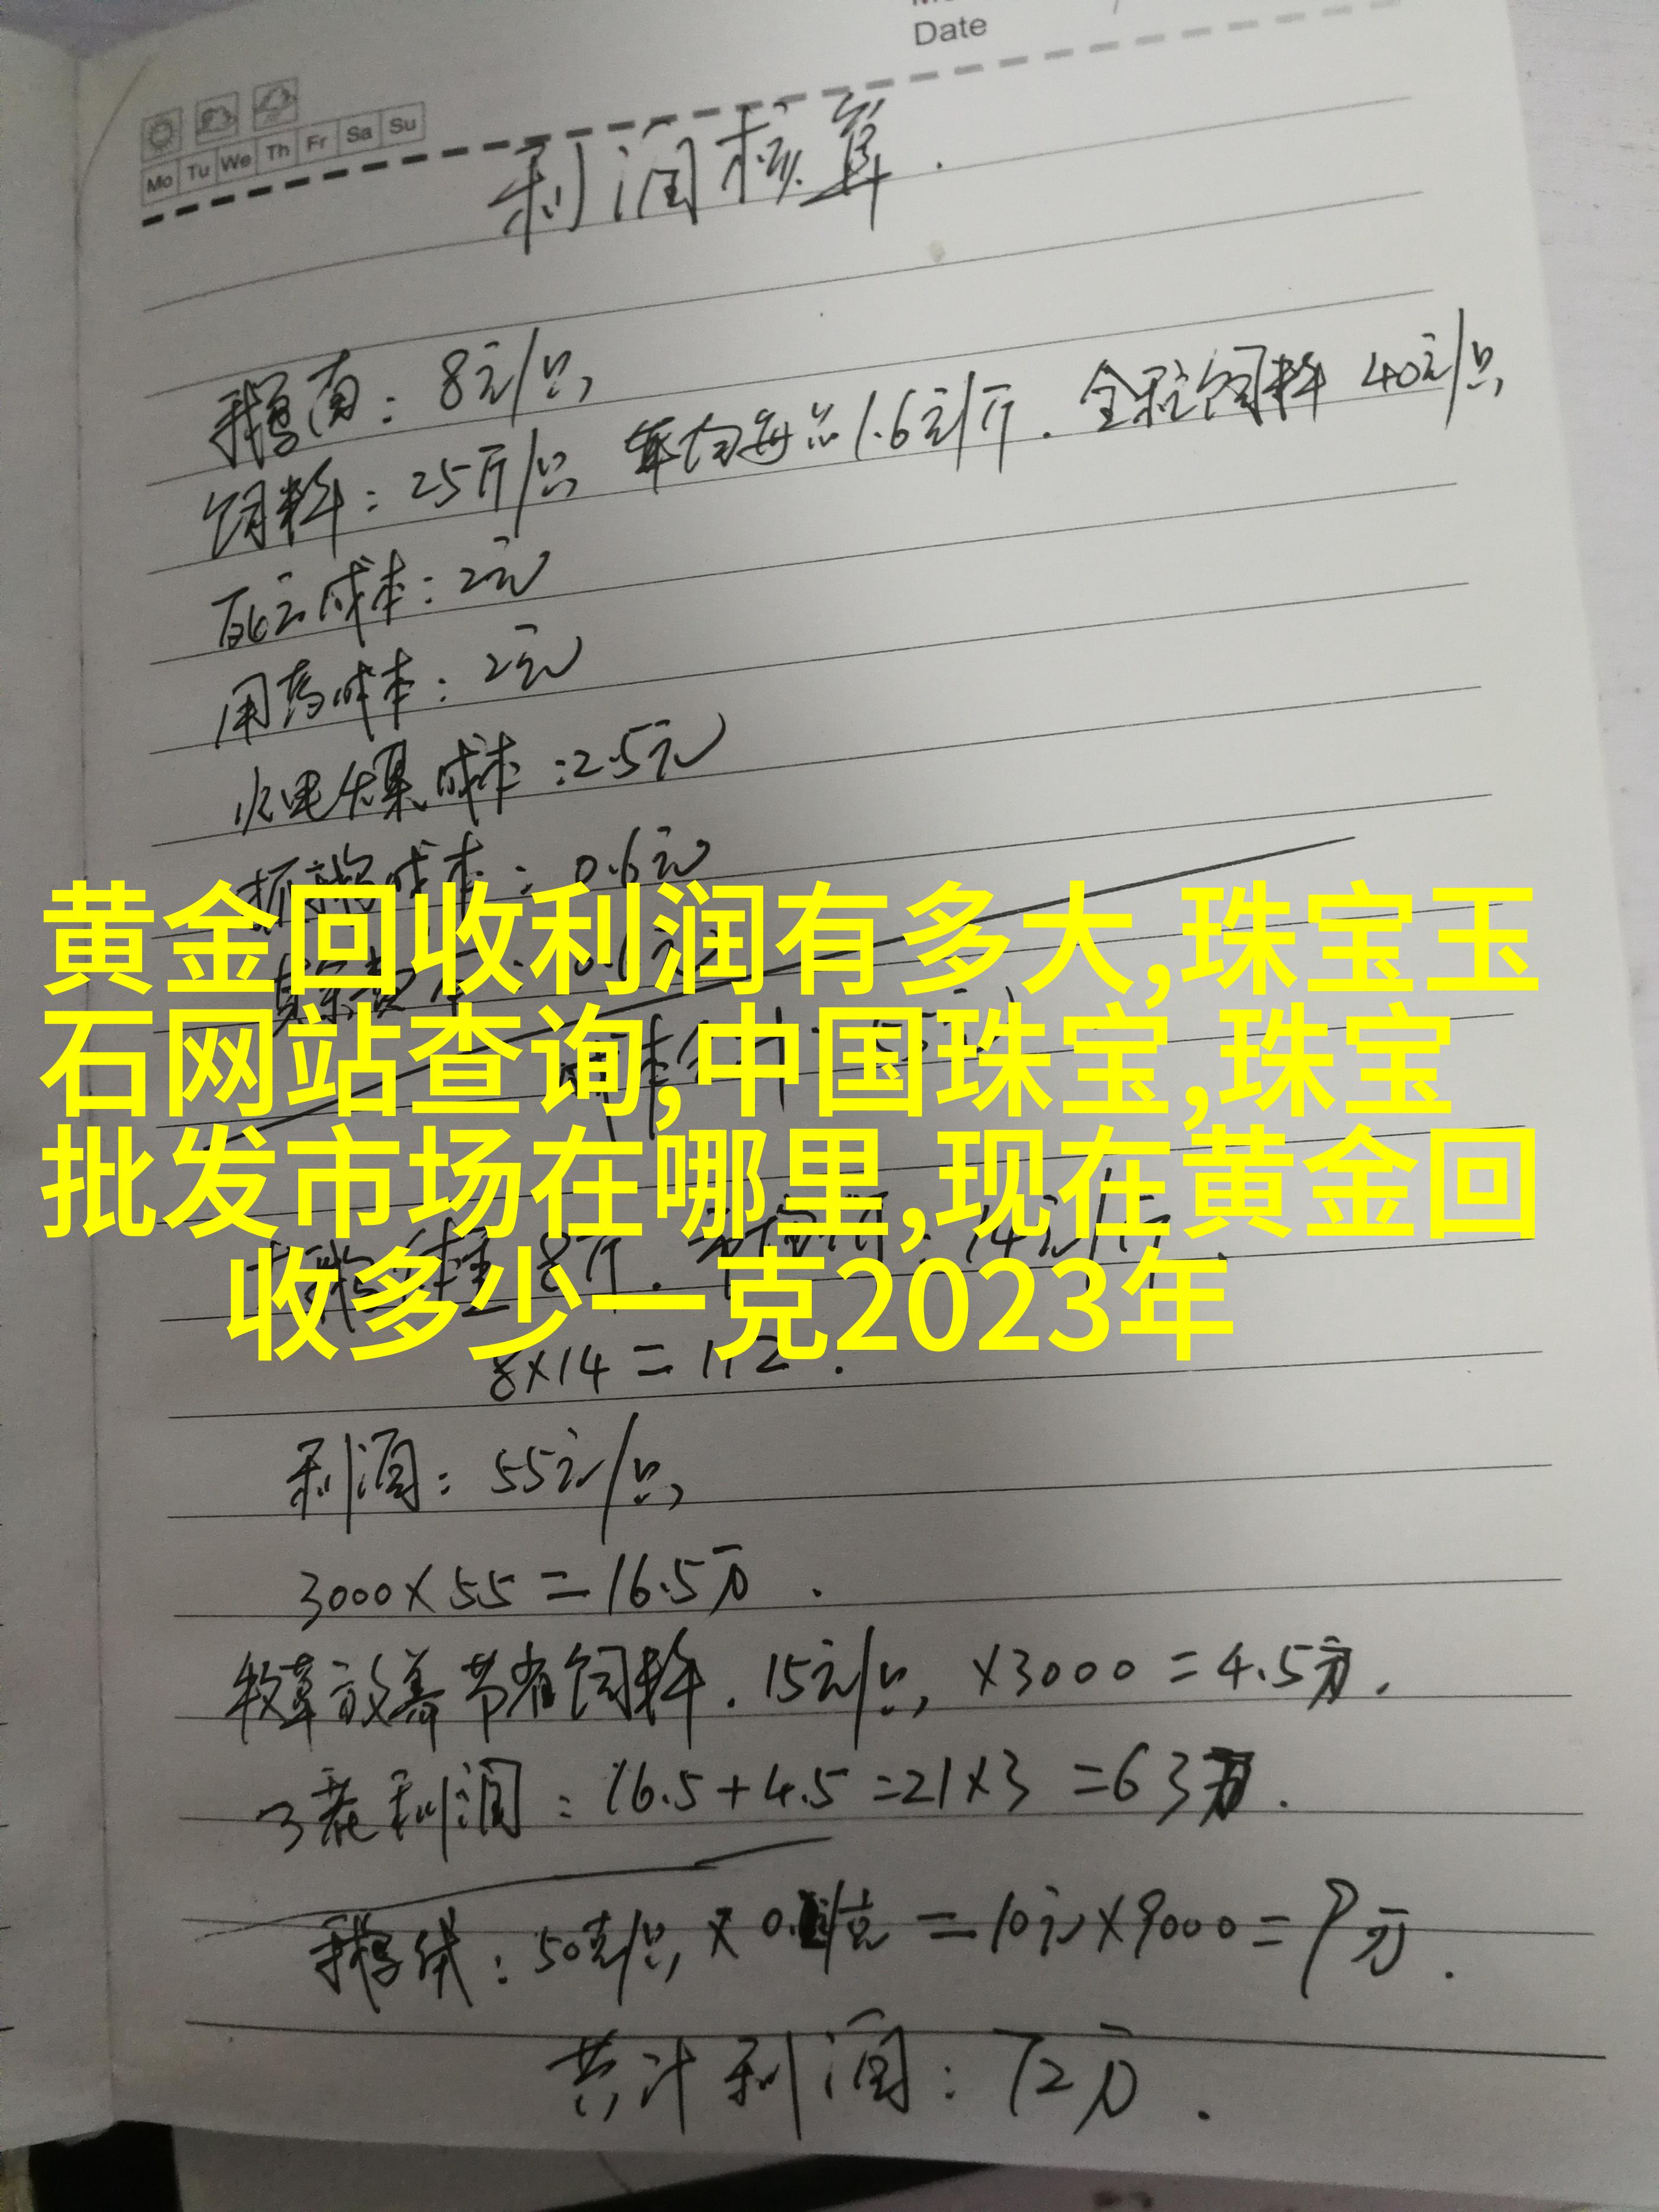 Date
Mo Tu We Th Fr Sa Su
利润核算.
鹅苗：8元/只
饲料：25斤/只 平均每斤1.6元/斤.全程饲料 40元/只
死亡成本：2元
用药成本：2元
水电煤成本：2.5元
成本：0.6元
黄金回收利润有多大,珠宝玉
石网站查询,中国珠宝,珠宝
批发市场在哪里,现在黄金回
收多少一克2023年
8斤. 14元/斤
8×14=112.
利润：55元/只
3000×55=16.5万.
牧草放养节省饲料.15元/只 ×3000=4.5万.
3茬利润：16.5+4.5=21×3=63万.
鹅绒：50克/只×0. /克=10元×9000=9万.
共计利润：72万.